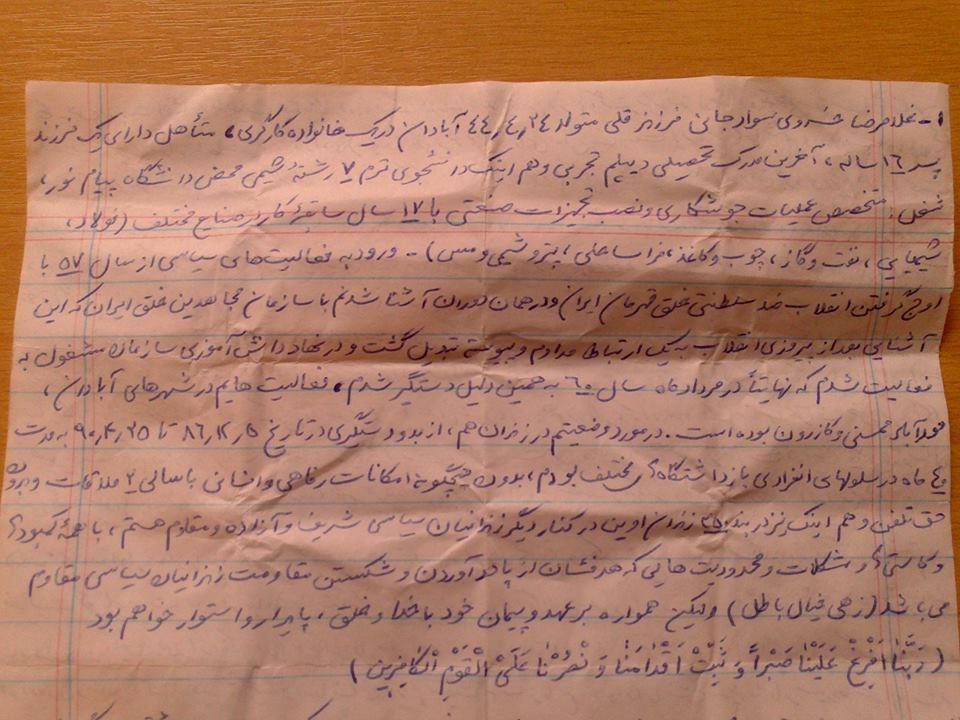 ۱- غلامرضا خسروی سوادجانی فرزند قلی متولد ٤٤٫٤٫٢٤ آبادان در یک خانواده کارگری، متأهل دارای یک فرزند
پسر ١٦ ساله، آخرین مدرک تحصیلی دیپلم تجربی و هم اینک دانشجوی ترم ٧ رشتۀ شیمی محض دانشگاه پیام نور،
شغل: متخصص عملیات جوشکاری و نصب تجهیزات صنعتی با ١٧ سال سابقۀ کار در صنایع مختلف (فولاد،
شیمیایی، نفت و گاز، چوب و کاغذ، فراساحلی، پتروشیمی و مس) - ورود به فعالیت‌های سیاسی از سال ٥٧ با
اوج گرفتن انقلاب ضد سلطنتی خلق قهرمان ایران و در همان دوران آشنا شدنم با سازمان مجاهدین خلق ایران که این
آشنایی بعد از پیروزی انقلاب به یک ارتباط مداوم و پیوسته تبدیل گشت و در نهاد دانش‌آموزی سازمان مشغول به
فعالیت شدم که نهایتاً در مرداد ماه سال ٦٠ به همین دلیل دستگیر شدم، فعالیت هایم در شهرهای آبادان،
نورآباد ممسنی و کازرون بوده است. در مورد وضعیتم در زندان هم، از بدو دستگیری در تاریخ ٨٦٫١٢٫٥ تا ٩٠٫٤٫٢٥ به مدت
٤٠ ماه در سلولهای انفرادی بازداشتگاه‌های مختلف بودم، بدون هیچگونه امکانات رفاهی و انسانی با سالی ٢ ملاقات و بدون
حق تلفن و هم اینک نیز در بند ٣٥٠ زندان اوین در کنار دیگر زندانیان سیاسی شریف و آزاده و مقاوم هستم، با همۀ کمبودها
و کاستی‌ها و مشکلات و محدودیت هایی که هدفشان از پا در آوردن و شکستن مقاومت زندانیان سیاسی مقاوم
می باشد (زهی خیال باطل) ولیکن همواره بر عهد و پیمان خود با خدا و خلق، پایدار و استوار خواهم بود
(رَبَّنا اَفْرِغْ عَلَیْنا صَبْراً وَ ثَبِّتْ اَقْدامَنا وَ نْصُرْنا عَلَیْ الْقَوْمِ الْکافِرِین)